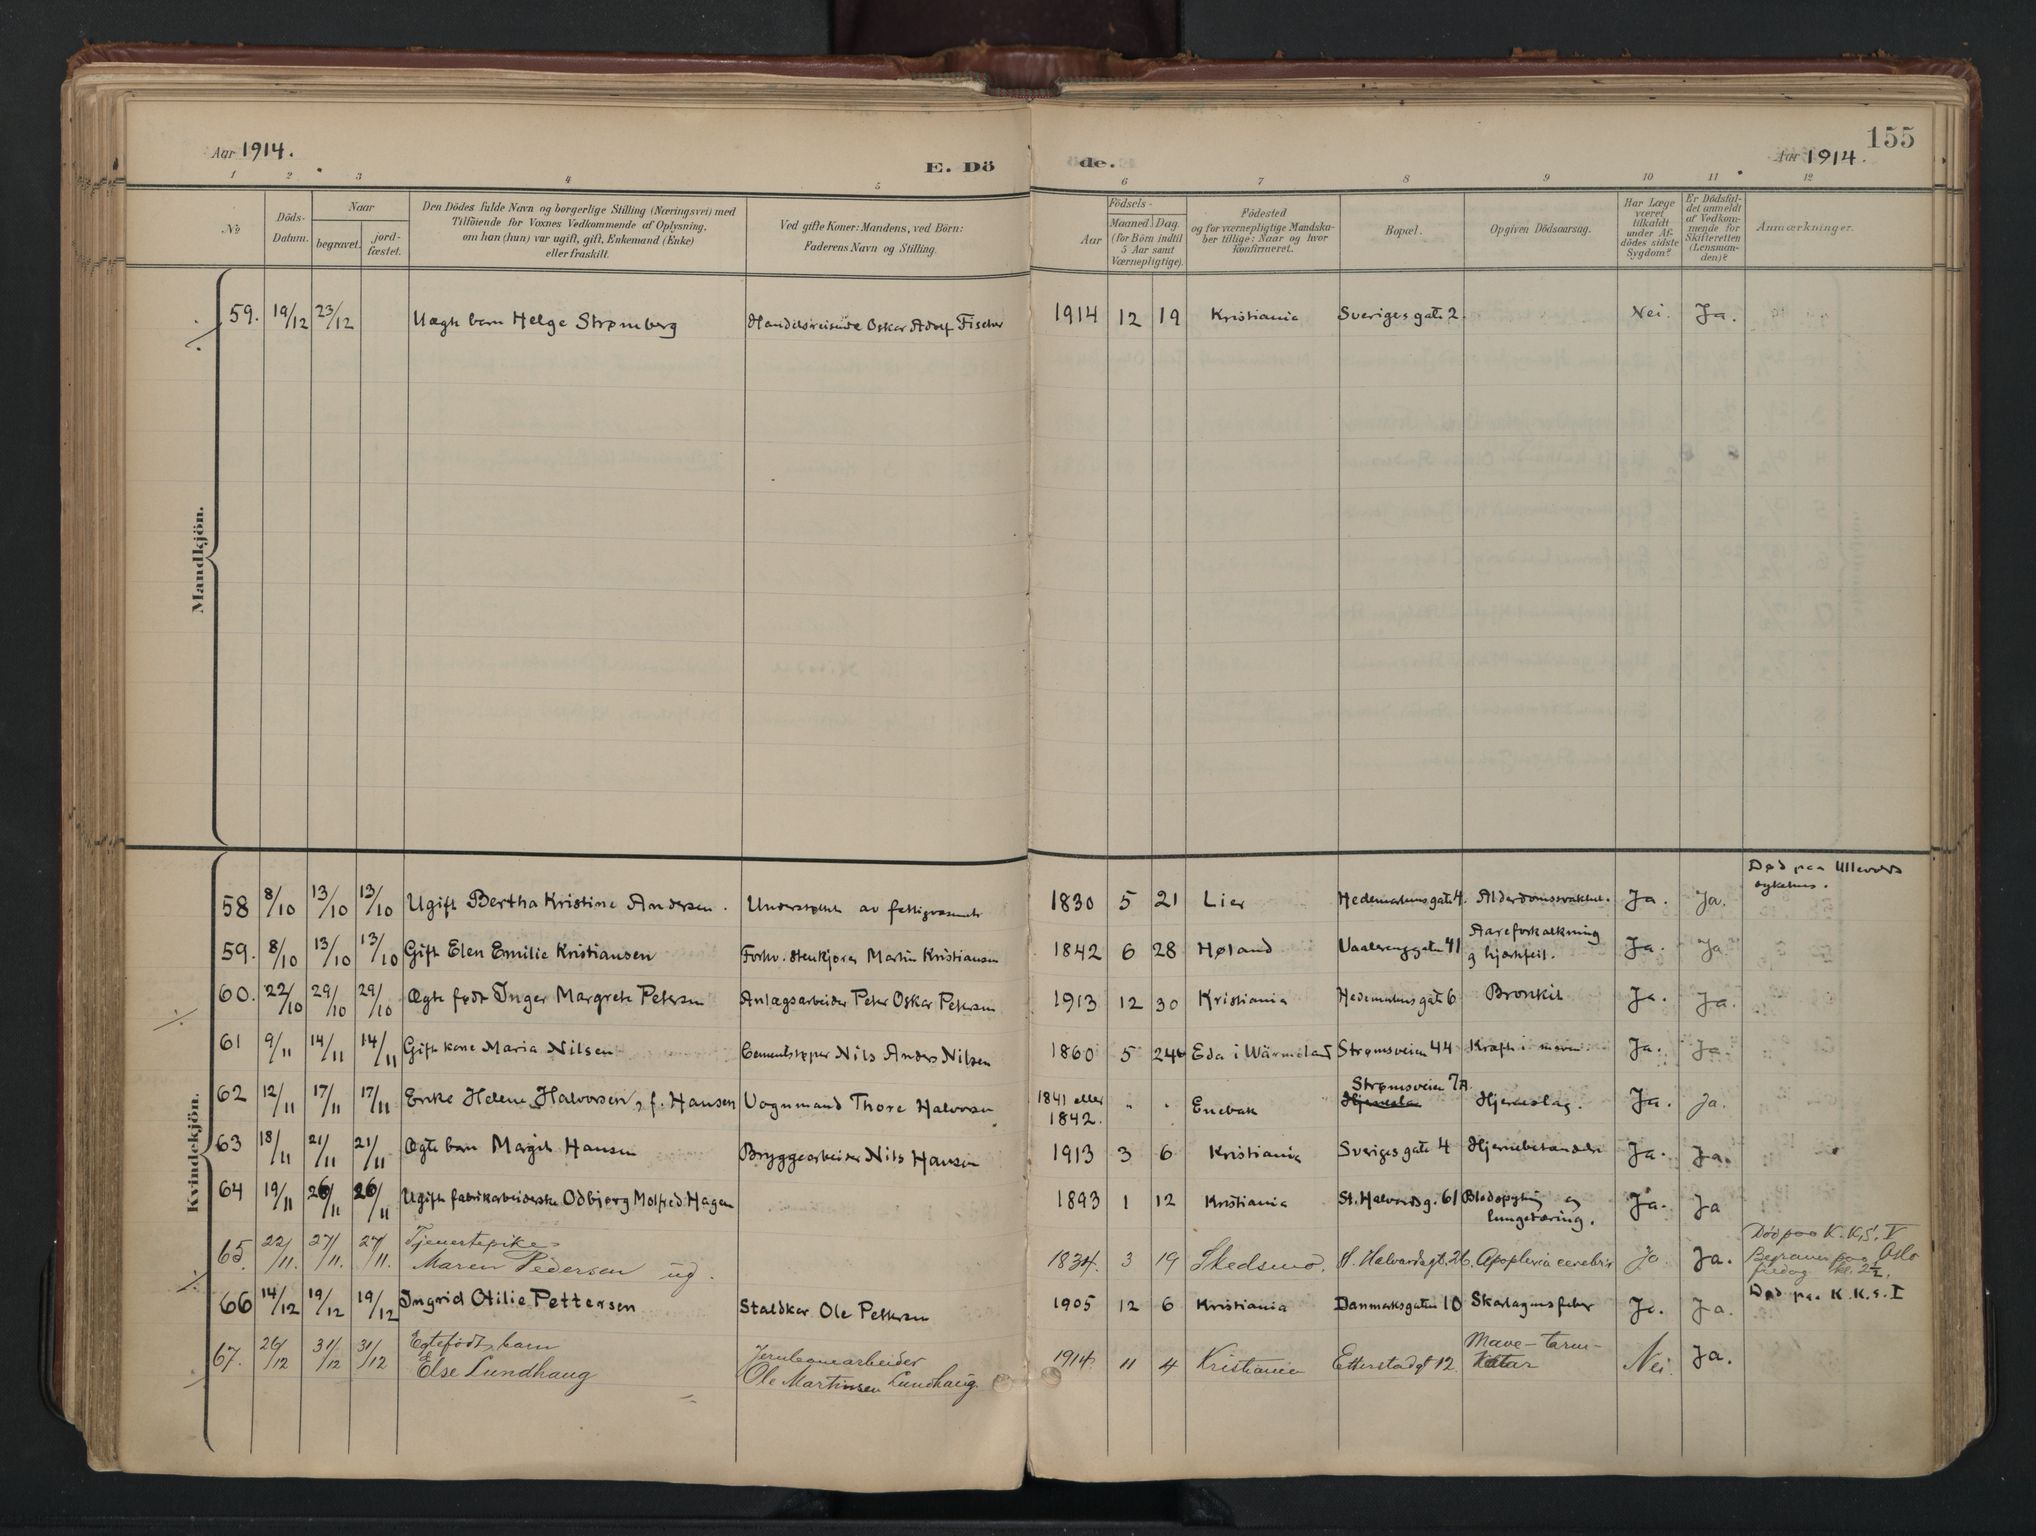 155
Aar 1914.
E. Dö
de.
Aar 1914.
1 2 3 4 5 6 7 8 9 10 11 12
№
Döds-
Datum.
Naar
begravet.
jord-
fæstet.
Den Dödes fulde Navn og borgerlige Stilling (Næringsvei) med
Tilföiende for Voxnes Vedkommende af Oplysning,
om han (hun) var ugift, gift, Enkemand (Enke)
eller fraskilt.
Ved gifte Koner: Mandens, ved Börn:
Faderens Navn og Stilling.
Födsels-
Aar
Maaned. Dag.
(for Börn indtil
5 Aar samt
Værnepligtige).
Födested
og for værnepligtige Mandska-
ber tillige: Naar og hvor
konfirmeret.
Bopæl.
Opgiven Dödsaarsag.
Har Læge
været
tilkaldt
under Af-
dödes sidste
Sygdom?
Er Dödsfal-
det anmeldt
af Vedkom-
mende for
Skifteretten
(Lensman-
den)?
Anmærkninger.
Mandkjön.
59. 19/12 23/12 Uægte barn Helge Strømberg Handelsreisende Oskar Adolf Fischer 1914 12 19 Kristiania Sveriges gate 2. Nei. Ja.
Kvindekjön.
Død paa Ullevold
sykehus.
58 8/10 13/10 13/10 Ugift Bertha Kristine Andersen. Understøttet av fattigvæsenet 1830 5 21 Lier Hedemarkensgate 4. Alderdomssvakhet. Ja. Ja.
59. 8/10 13/10 13/10 Gift Elen Emilie Kristiansen Forhv. stenkjører Martin Kristiansen 1842 6 28 Høland Vaalerenggaten 41 Aareforkalkning
og hjertefeil. Ja. Ja
60. 22/10 29/10 29/10 Ægte født Inger Margrete Petersen Anlægsarbeider Peter Oskar Petersen 1913 12 30 Kristiania Hedemarkensgate 6 Bronkit Ja. Ja.
61 9/11 14/11 14/11 Gift kone Maria Nilsen Cementstøper Nils Anders Nilsen 1860 5 24 Eda i Wärmeland Strømsveien 44 Kræft i maven. Ja. Ja.
62 12/11 17/11 17/11 Enke Helene Halvorsen, f. Hansen Vognmand Thore Halvorsen 1841 eller
1842. " " Enebak Strømsveien 7A.
Hjerneslag. Ja. Ja.
63 18/11 21/11 21/11 Ægte barn Margit Hansen Bryggearbeider Nils Hansen 1913 3 6 Kristiania Sveriges gate 4 Hjernebetændelse Ja. Ja.
64 19/11 26/11 26/11 Ugift fabrikarbeiderske Odbjørg Molfred Hagen 1893 1 12 Kristiania St. Halvardsg. 61 Blodspytning og
lungetæring. Ja. Ja
65. 22/11. 27/11. 27/11. Tjenestepike
Maren Pedersen ug. 1834. 3 19 Skedsmo. St. Halvardsgt. 26. Apoplexia cerebri Ja. Ja. Død paa K.K.S. V
Begraves paa Oslo
fredag kl. 2½.
66 14/12 19/12 19/12 Ingrid Otilie Pettersen Staldkar Ole Petersen 1905 12 6 Kristiania Danmarksgaten 10 Skarlagensfeber Ja. Ja. Død paa K.K.S. I
67. 26/12 31/12 31/12 Egtefødt barn
Else Lundhaug Jernbanearbeider
Ole Martinsen Lundhaug. 1914. 11 4 Kristiania Etterstadgt 12 Mave-tarm-
katar Nei. Ja.